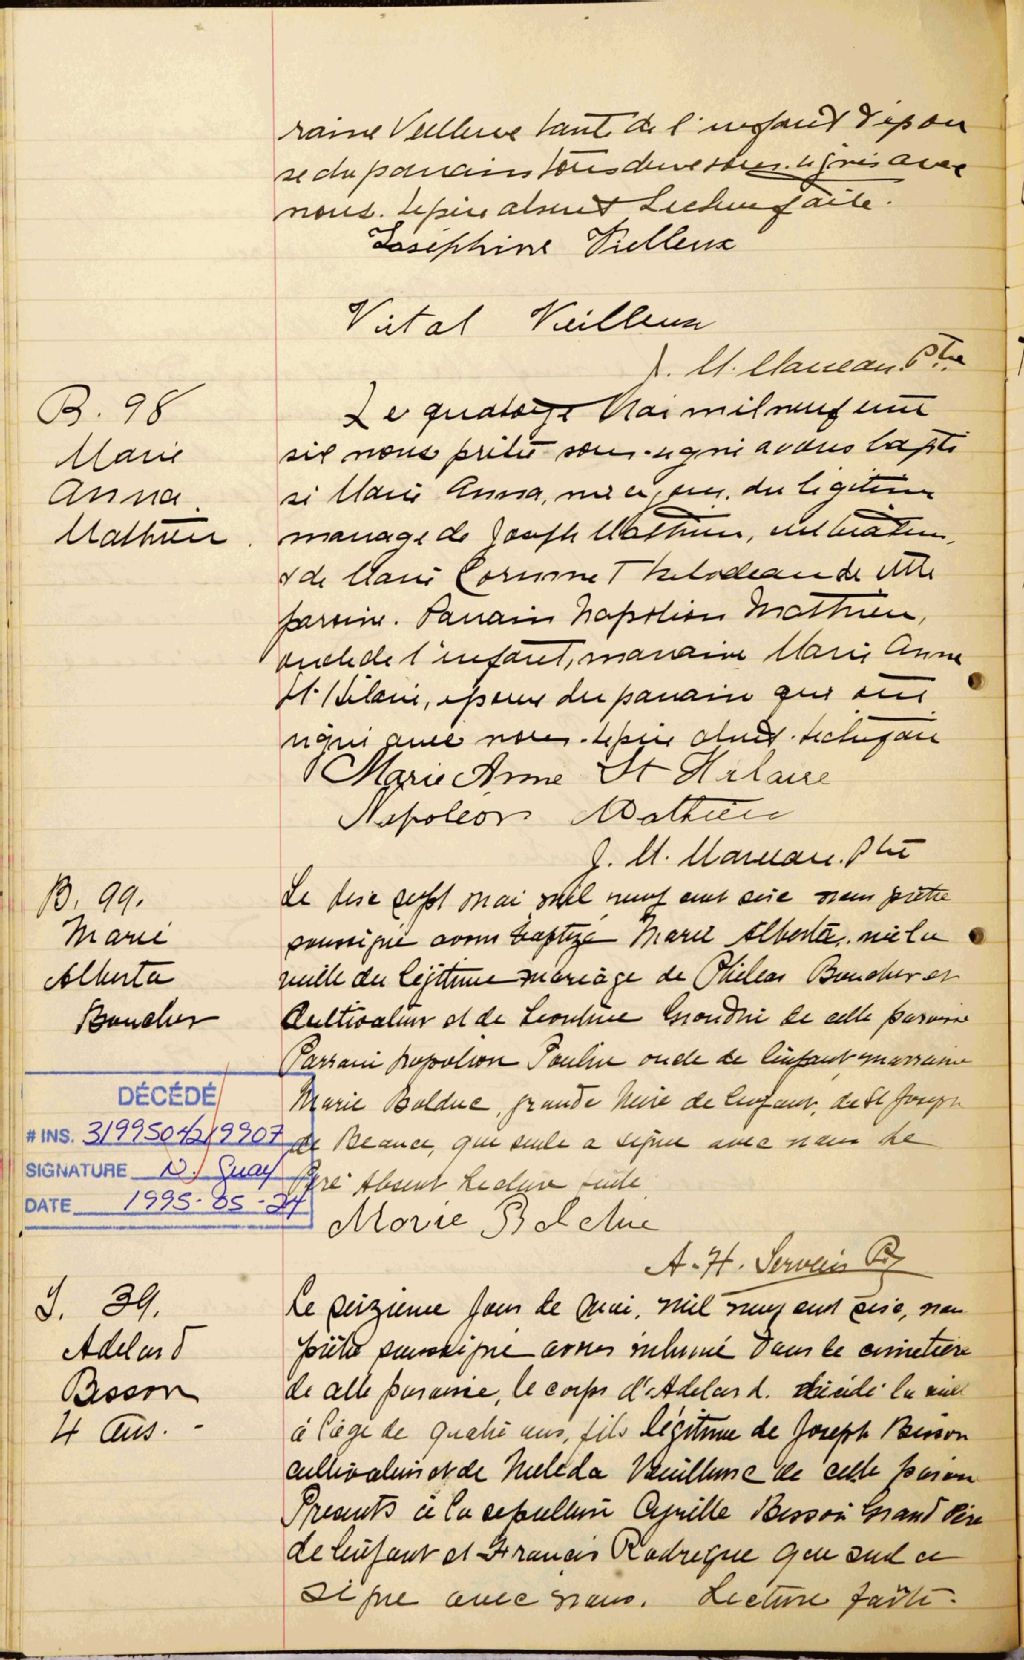 raine Veilleux tante de l'enfant & épou
se du parrain tous deux sous-signés avec
nous. Le père absent Lecture faite.
Joséphine Vielleux
Vital Veilleux
J. M. Marceau. Ptre
B. 98
Marie
Anna.
Mathieu.
Le quatorze Mai mil neuf cent
six nous prêtre sous-signé avons bapti
sé Marie Anna, née ce jour, du légitime
mariage de Joseph Mathieu, cultivateur,
& de Marie Corinne Thibodeau de cette
paroisse. Parrain Napoléon Mathieu,
oncle de l'enfant, marraine Marie Anne
St. Hilaire, épouse du parrain qui ont
signé avec nous. Le père absent. Lecture faite
Marie Anne St Hilaire
Napoléon Mathieu
J. M. Marceau. Ptre
B. 99.
Marie
Alberta
Boucher
Le dix sept mai mil neuf cent six nous prêtre
soussigné avons baptizé Marie Alberta, née la
veille du légitime mariage de Philéas Boucher et
Cultivateur et de Grondin de cette paroisse
Parrain Napoléon Poulin oncle de l'enfant marraine
Marie Bolduc, grande Mère de l'enfant, de St Joseph
de Beauce, qui seule a signé avec nous Le
Père Absent Lecture faite
Marie Bolduc
A.-H. Servais Ptr
DÉCÉDÉ
# INS. 3199504219907
SIGNATURE N. Guay
DATE 1995-05-24
S. 39.
Adelard
Bisson
4 ans. -
Le seizieme jour de Mai, mil neuf cent six, nous
prêtre soussigné avons inhumé dans le cimetière
de cette paroisse, le corps d'Adelard. décédé la veille
à l'âge de quatre ans, fils légitime de Joseph Bisson
cultivateur et de Meleda Veilleux de cette paroisse
Présents à la sépulture Cyrille Bisson Grand Père
de l'enfant et Francis Rodrigue qui seul a
signé avec nous. Lecture faite.